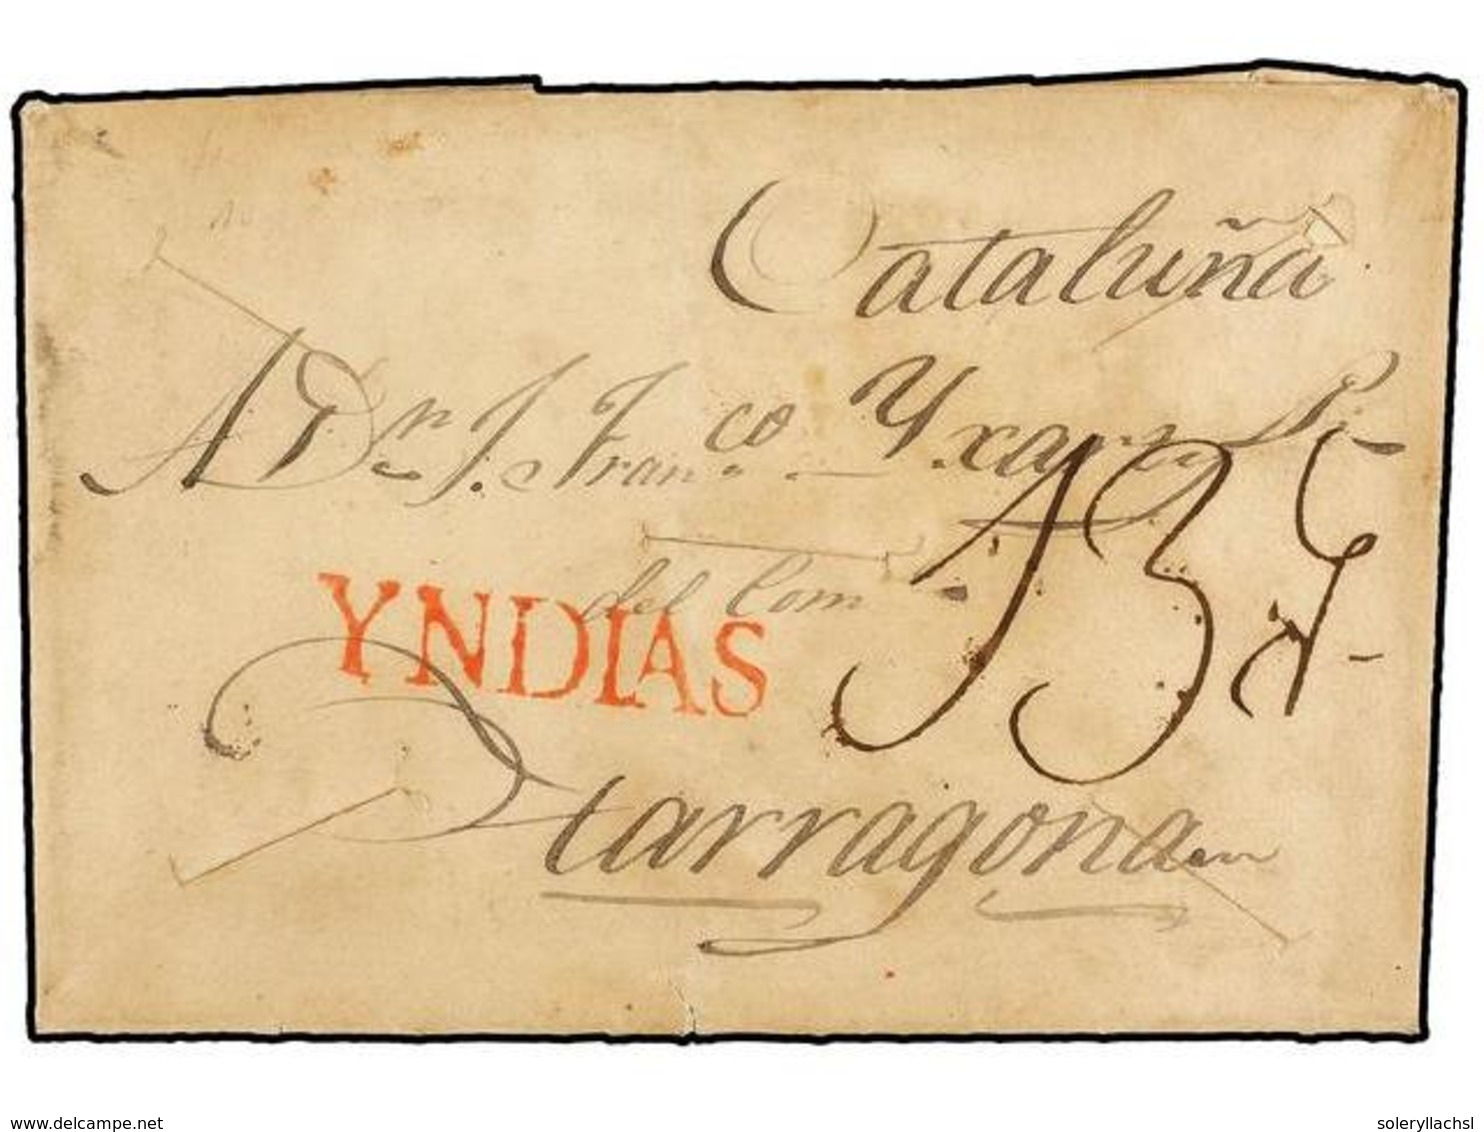 Cataluña
A Dn J. Franco Yxart
del Com
YNDIAS
Tarragona
www.delcampe.net
soleryllachsl